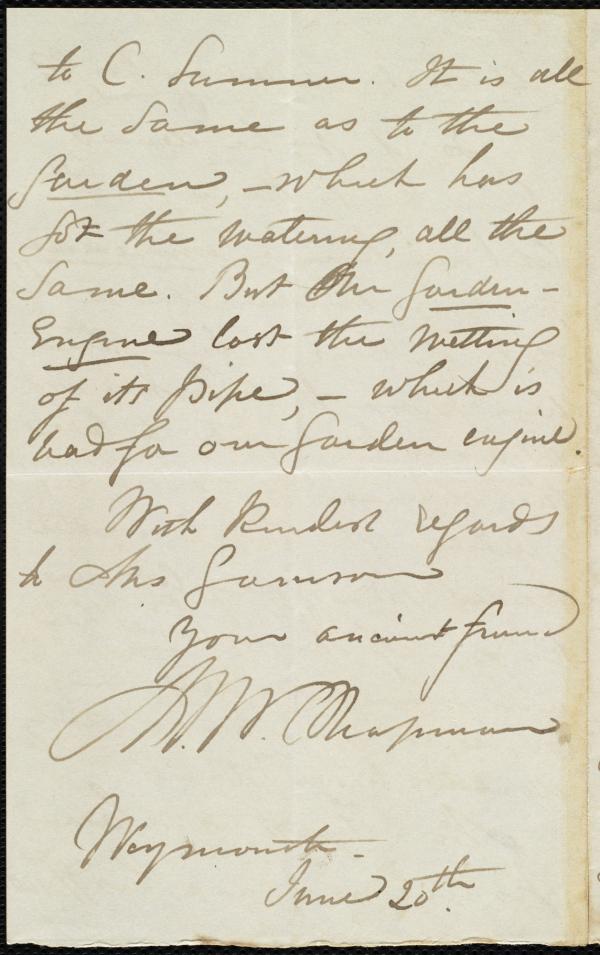 to C. Sumner. It is all
the same as to the
garden, – which has
got the watering, all the
same. But the garden-
Engine lost the wetting
of its pipe, – which is
bad for our garden engine.
With kindest regards
to Mrs Garrison
Your ancient friend
M. W. Chapman
Weymouth –
June 20th.